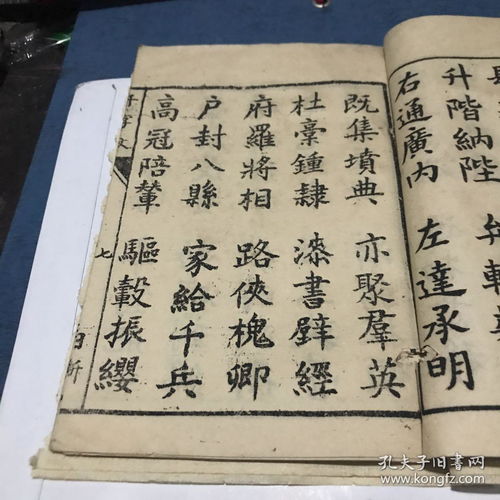 升階納陛 弁轉
右通廣内 左達承明
既集墳典 亦聚羣英
杜稾鍾隸 漆書壁經
府羅將相 路俠槐卿
户封八縣 家給千兵
高冠陪輦 驅轂振纓
七
孔夫子旧书网
www.kongfz.com